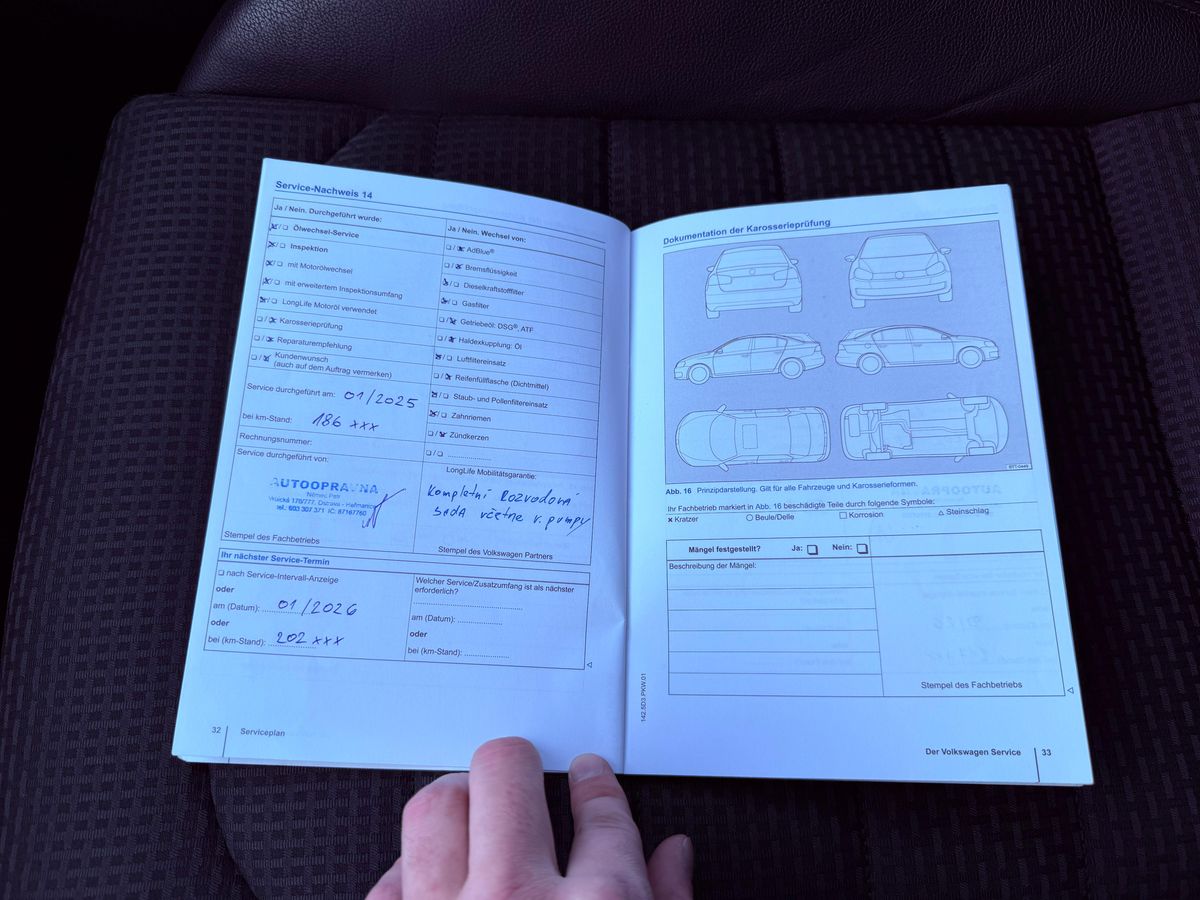 Service-Nachweis 14
Ja / Nein. Durchgeführt wurde:
Ölwechsel-Service
Inspektion
mit Motorölwechsel
mit erweitertem Inspektionsumfang
LongLife Motoröl verwendet
Karosserieprüfung
Reparaturempfehlung
Kundenwunsch
(auch auf dem Auftrag vermerken)
Ja / Nein. Wechsel von:
AdBlue®
Bremsflüssigkeit
Dieselkraftstofffilter
Gasfilter
Getriebeöl: DSG®, ATF
Haldexkupplung: Öl
Luftfiltereinsatz
Reifenfüllflasche (Dichtmittel)
Staub- und Pollenfiltereinsatz
Zahnriemen
Zündkerzen
Service durchgeführt am: 01/2025
bei km-Stand: 186 xxx
Rechnungsnummer:
Service durchgeführt von:
AUTOOPRAVNA
Němec Petr
Vrbická 178/777, Ostrava - Heřmanice
tel. 603 307 371 IČ: 87167760
Stempel des Fachbetriebs
LongLife Mobilitätsgarantie:
Kompletní Rozvodová
sada včetne v. pumpy
Stempel des Volkswagen Partners
Ihr nächster Service-Termin
nach Service-Intervall-Anzeige
oder
am (Datum): 01/2026
oder
bei (km-Stand): 202 xxx
Welcher Service/Zusatzumfang ist als nächster
erforderlich?
am (Datum):
oder
bei (km-Stand):
32 Serviceplan
Dokumentation der Karosserieprüfung
BTT-0449
Abb. 16 Prinzipdarstellung. Gilt für alle Fahrzeuge und Karosserieformen.
Ihr Fachbetrieb markiert in Abb. 16 beschädigte Teile durch folgende Symbole:
x Kratzer ○ Beule/Delle □ Korrosion △ Steinschlag
Mängel festgestellt? Ja: □ Nein: □
Beschreibung der Mängel:
Stempel des Fachbetriebs
142.5D3.PKW.01
Der Volkswagen Service 33